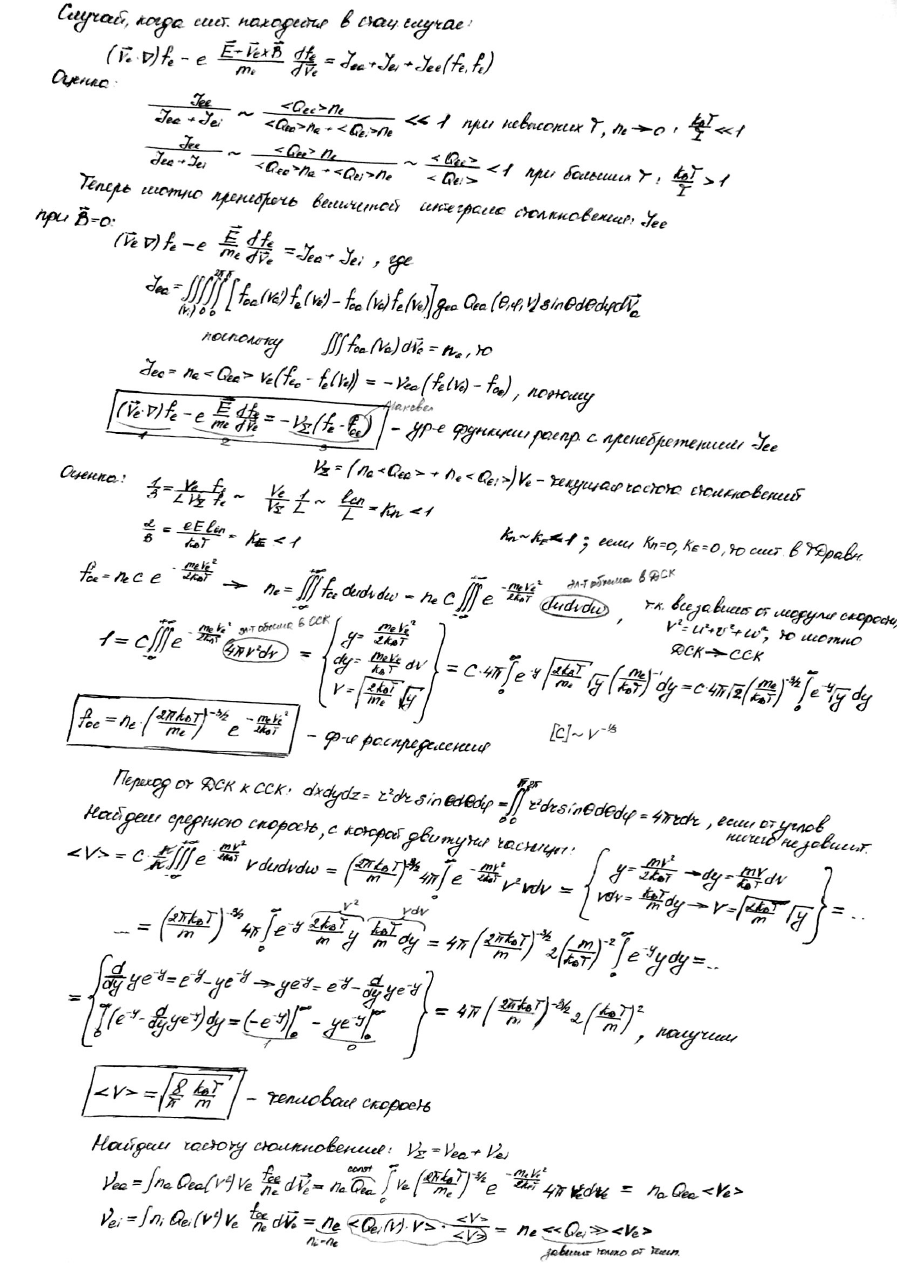 Случай, когда сист. находится в стац случае:
(v⃗e·∇)fe − e (E⃗+v⃗e×B⃗)/me dfe/dv⃗e = Jea + Jei + Jee(fe,fe)
Оценка:
Jee/(Jea+Jei) ~ <Qee>ne/(<Qea>na + <Qei>ne) << 1 при невысоких T, ne→0, kбT/I << 1
Jee/(Jea+Jei) ~ <Qee>ne/(<Qea>na + <Qei>ne) ~ <Qee>/<Qei> < 1 при больших T, kбT/I > 1
Теперь можно пренебречь величиной интеграла столкновения: Jee
при B⃗=0:
(v⃗e ∇)fe − e E⃗/me dfe/dv⃗e = Jea + Jei, где
Jea = ∫∫∫∫∫ [foa(va')fe(ve') − foa(va)fe(ve)] gea Qea(θ,φ,V) sinθdθdφdv⃗a
поскольку ∫∫∫ foa(va)dv⃗a = na, то
Jea = na<Qea> ve(foe − fe(ve)) = −νea(fe(ve) − foe), поэтому
(v⃗e·∇)fe − e E⃗/me dfe/dv⃗e = −νΣ(fe − foe) – ур-е функции распр. с пренебрежением Jee
1 2 3
νΣ = (na<Qea> + ne<Qei>)ve – текущая частота столкновений
Оценка: 1/3 = ve/(L νΣ) fe/fe ~ ve/νΣ 1/L ~ lеп/L = Kn < 1
2/3 = eElеп/kбT = KE < 1 Kn ~ KE < 1; если Kn=0, KE=0, то сист. в ТДравн.
foe = ne c e^(−meve²/2kбT) → ne = ∫∫∫ foe dudvdw = ne C ∫∫∫ e^(−meve²/2kбT) dudvdw, эл-т объема в ДСК т.к. все зависит от модуля скорости,
V² = u²+v²+w², то можно
ДСК→ССК
1 = C∫∫∫ e^(−meve²/2kбT) 4πv²dv эл-т объема в ССК = { y = meve²/2kбT; dy = meve/kбT dv; V = √(2kбT/me) √y } = C·4π∫e^(−y) √(2kбT/me) √y (me/kбT)^(−1) dy = C 4π√2 (me/kбT)^(−3/2) ∫e^(−y)√y dy
foe = ne·(2πkбT/me)^(−3/2) e^(−meve²/2kбT) – ф-я распределения [C] ~ V^(−3)
Переход от ДСК к ССК: dxdydz = r²dr sinθdθdφ = ∫∫ r²dr sinθdθdφ = 4πrdr, если от углов
ничего не зависит.
Найдем среднюю скорость, с которой движутся частицы:
<V> = C ∫∫∫ e^(−mv²/2kбT) v dudvdw = (2πkбT/m)^(−3/2) 4π∫e^(−mv²/2kбT) v² vdv = { y = mv²/2kбT → dy = mv/kбT dv; vdv = kбT/m dy → V = √(2kбT/m) √y } = ...
... = (2πkбT/m)^(−3/2) 4π∫e^(−y) 2kбT/m y kбT/m dy = 4π(2πkбT/m)^(−3/2) 2(m/kбT)^(−2) ∫e^(−y) y dy = ...
= { d/dy ye^(−y) = e^(−y) − ye^(−y) → ye^(−y) = e^(−y) − d/dy ye^(−y); ∫(e^(−y) − d/dy ye^(−y))dy = (−e^(−y))|₀^∞ − ye^(−y)|₀^∞ } = 4π(2πkбT/m)^(−3/2) 2(kбT/m)², получим
<V> = √(8/π kбT/m) – тепловая скорость
Найдем частоту столкновения: νΣ = νea + νei
νea = ∫na Qea(ve) ve foe/ne dv⃗e = na Qea const ∫ ve (2πkбT/me)^(−3/2) e^(−meve²/2kбT) 4πve²dve = na Qea <ve>
νei = ∫ni Qei(ve) ve foe/ne dv⃗e = ne <Qei(v)·V> · <V>/<V> = ne <<Qei>> <ve>
ni=ne зависит только от темп.